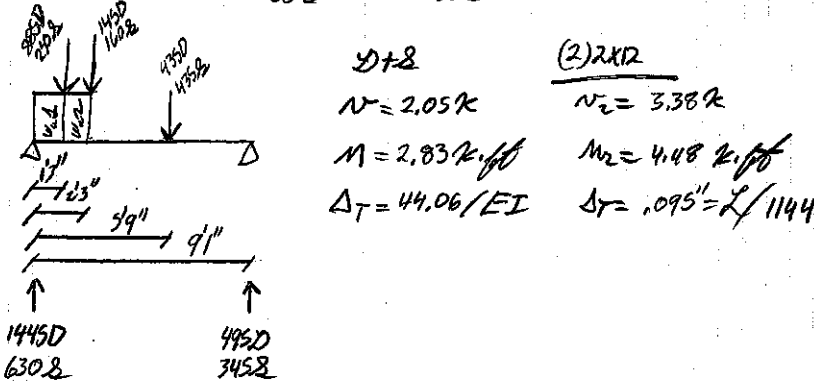 885D
230S
145D
160S
435D
435S
w1
w2
1'3"
2'3"
5'9"
9'1"
1445D
630S
495D
345S
D+S
V = 2.05K
M = 2.83 K·ft
ΔT = 44.06/EI
(2)2X12
Vr = 3.38K
Mr = 4.48 K·ft
ΔT = .095" = L/1144